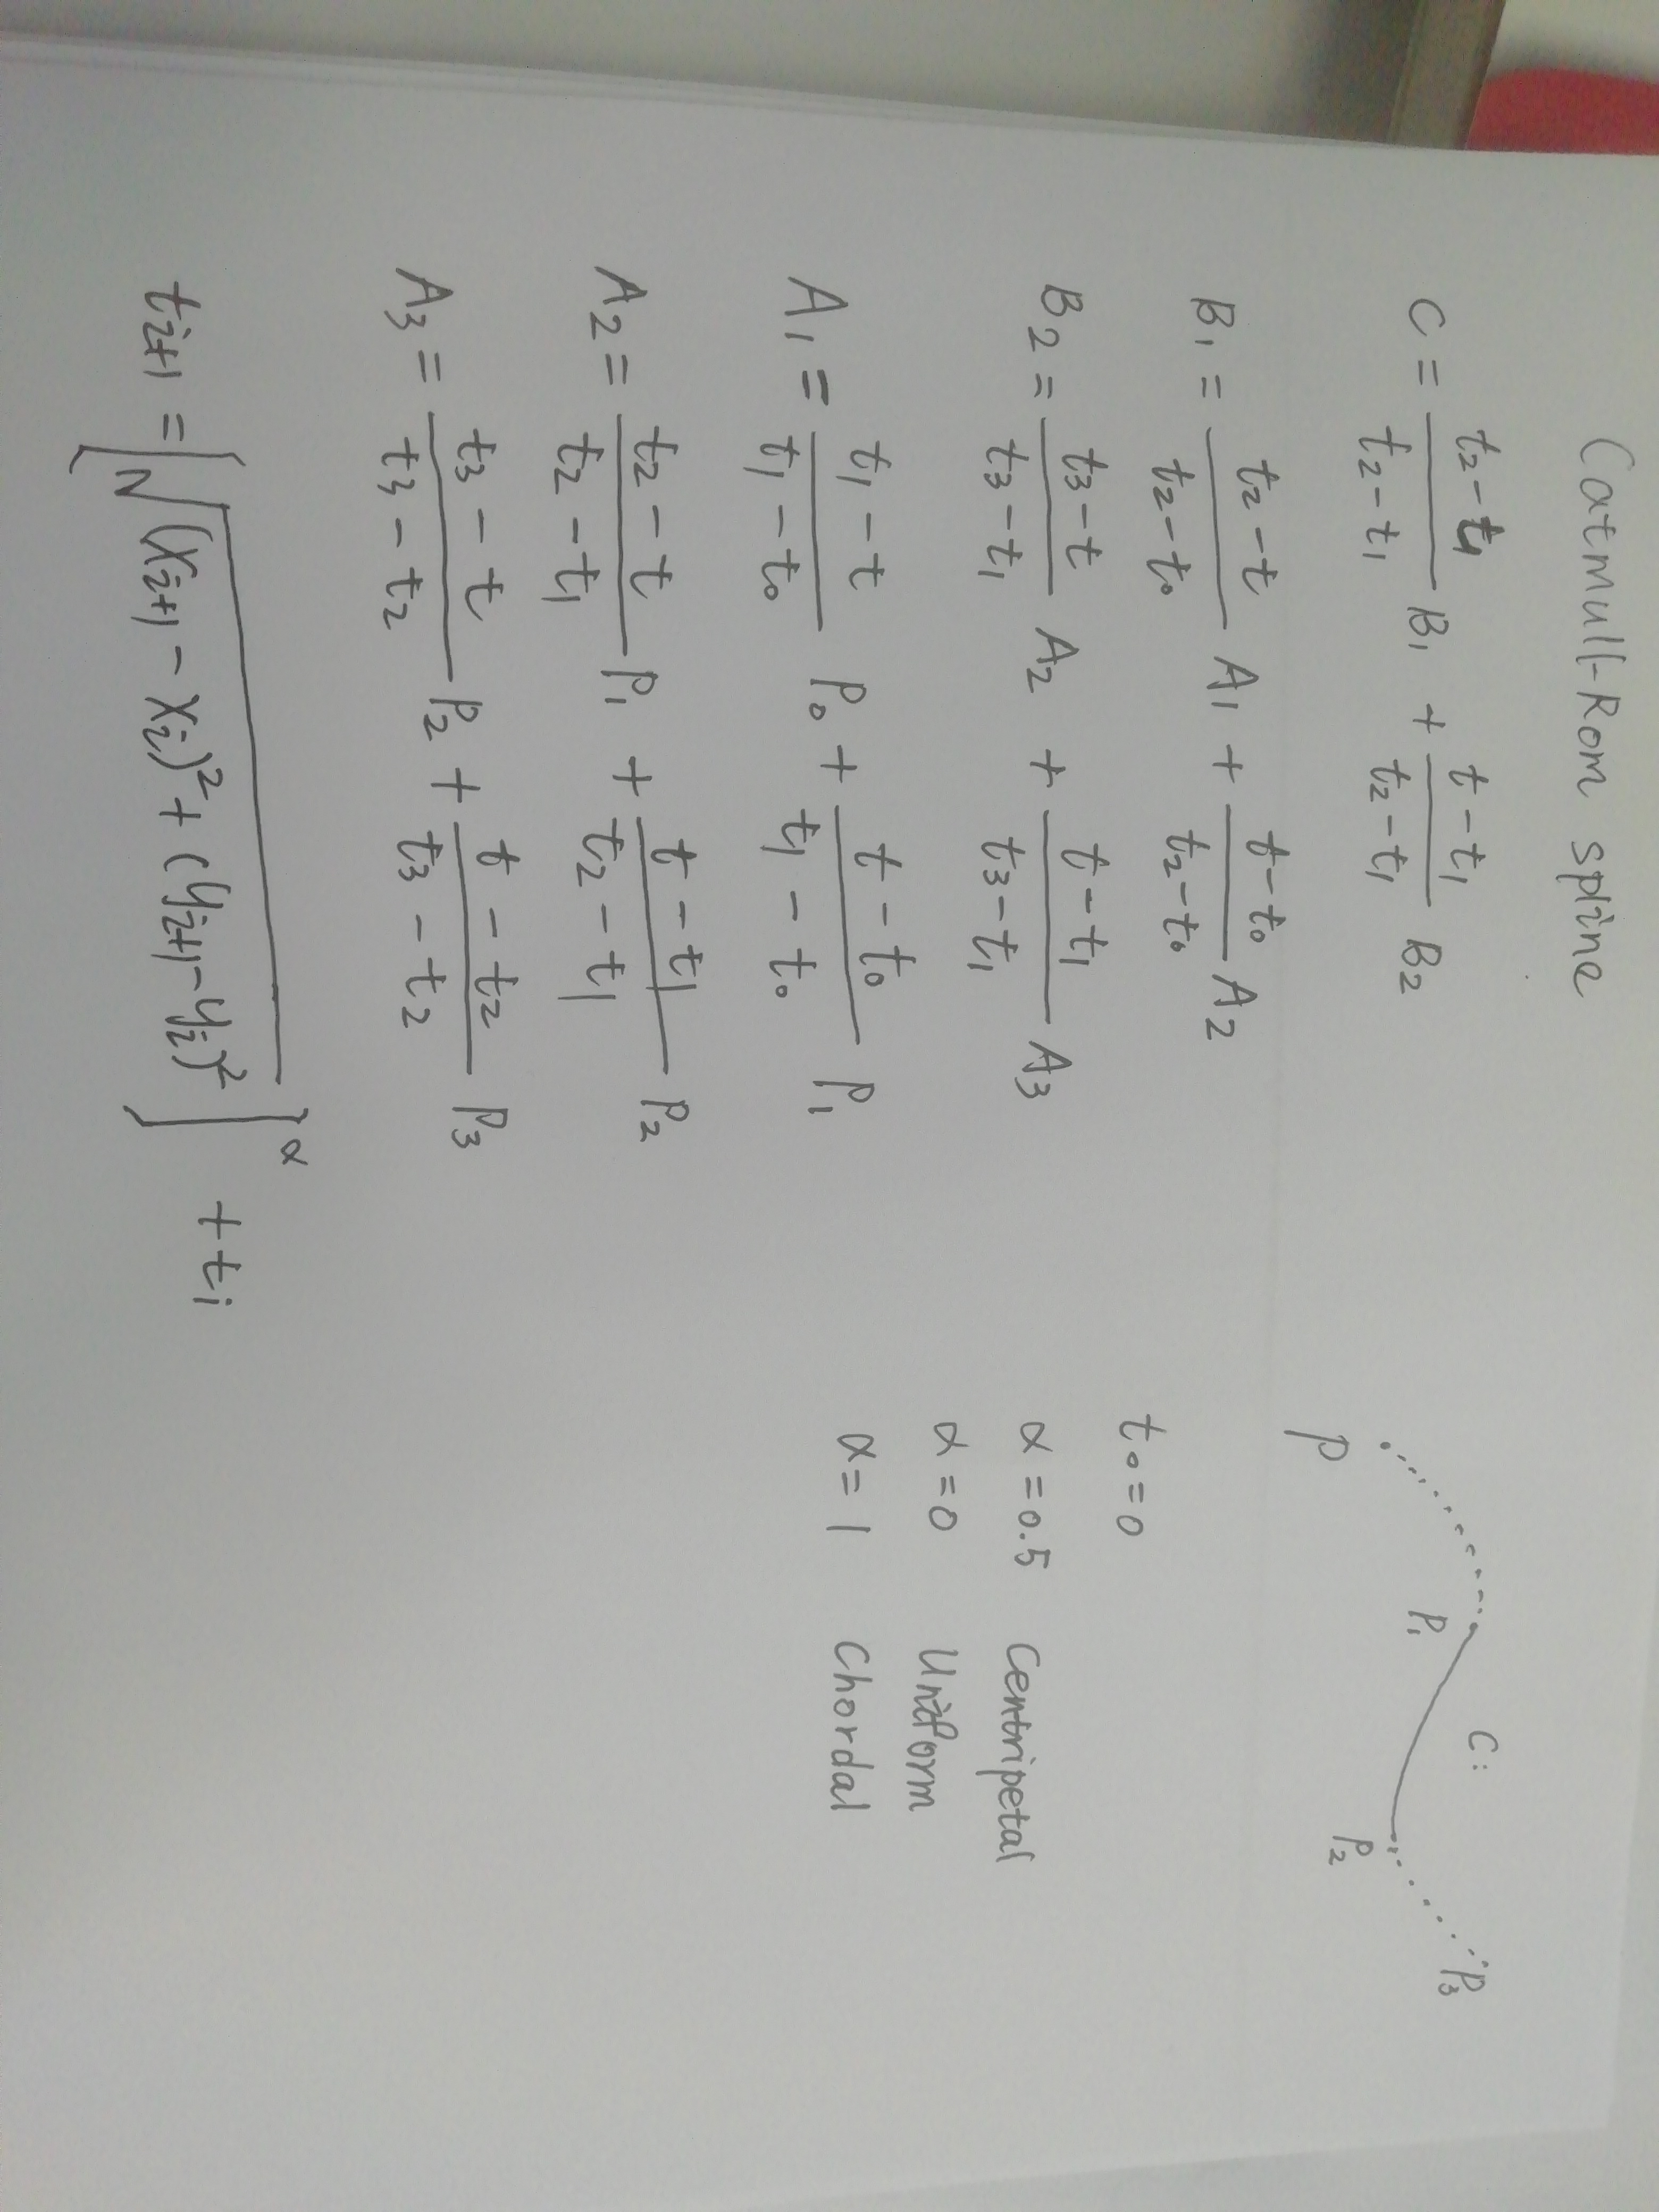 Catmull-Rom spline
C = (t₂ - t₁)/(t₂ - t₁) B₁ + (t - t₁)/(t₂ - t₁) B₂
B₁ = (t₂ - t)/(t₂ - t₀) A₁ + (t - t₀)/(t₂ - t₀) A₂
B₂ = (t₃ - t)/(t₃ - t₁) A₂ + (t - t₁)/(t₃ - t₁) A₃
A₁ = (t₁ - t)/(t₁ - t₀) P₀ + (t - t₀)/(t₁ - t₀) P₁
A₂ = (t₂ - t)/(t₂ - t₁) P₁ + (t - t₁)/(t₂ - t₁) P₂
A₃ = (t₃ - t)/(t₃ - t₂) P₂ + (t - t₂)/(t₃ - t₂) P₃
tᵢ₊₁ = [√((xᵢ₊₁ - xᵢ)² + (yᵢ₊₁ - yᵢ)²)]^α + tᵢ
C:
P
P₁
P₂
P₃
t₀ = 0
α = 0.5 Centripetal
α = 0 Uniform
α = 1 Chordal